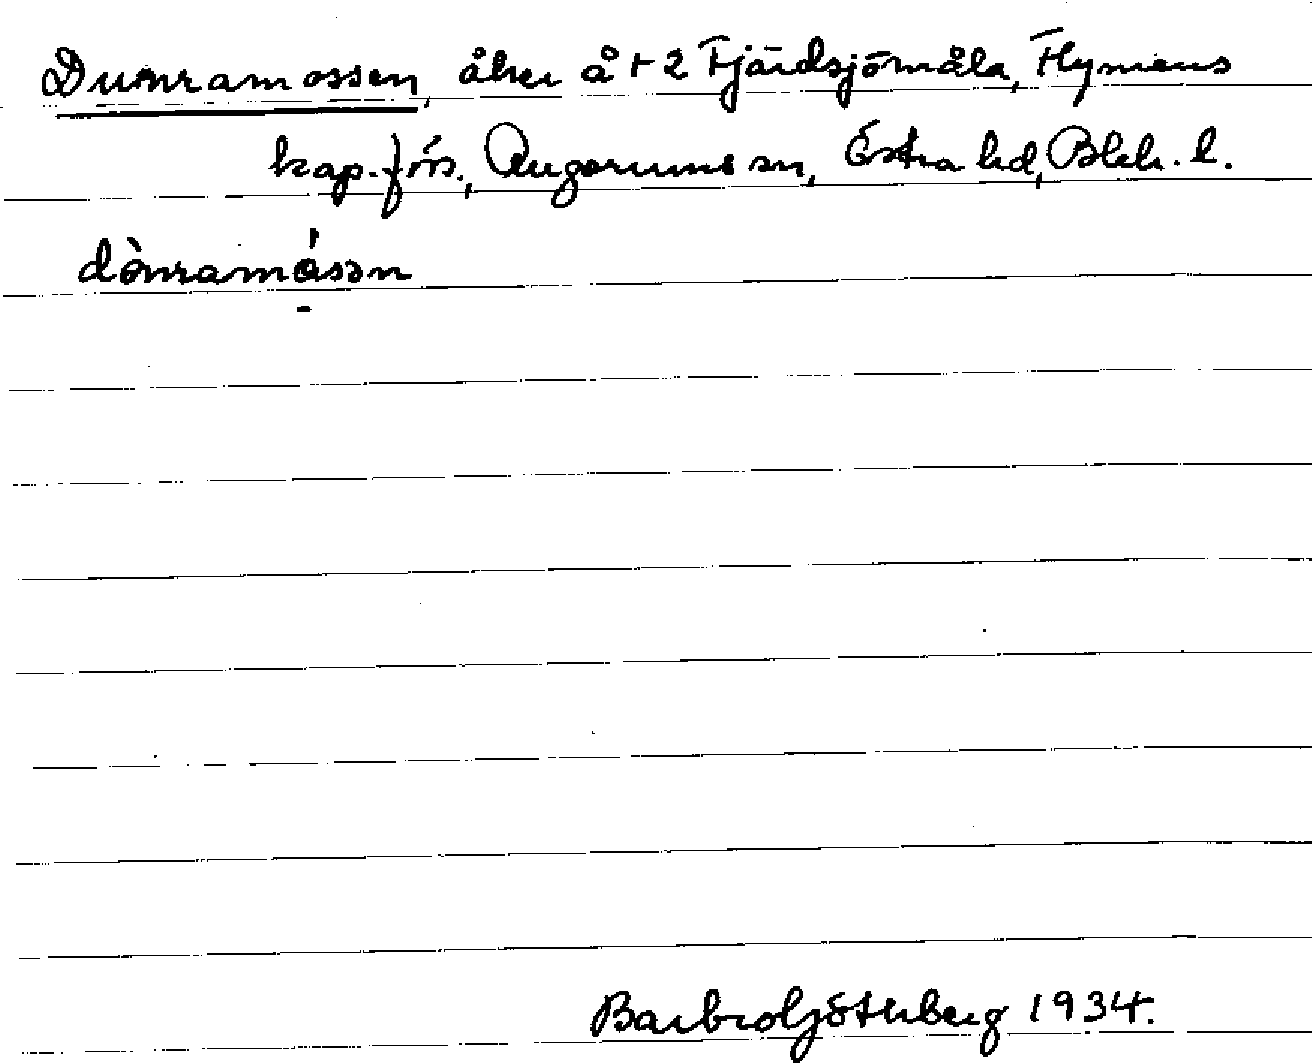 Dunramossen, åker å 12 Fjärdsjömåla, Flymens
kap.förs., Augerums sn, Östra hd, Blek. l.
dònramåsən
Barbro Götherberg 1934.